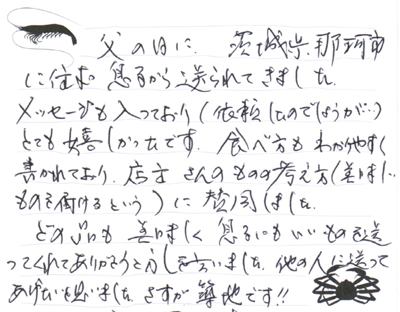 父の日に、茨城県那珂市
に住む息子から送られてきました。
メッセージも入っており(依頼したのでしょうが…)
とても嬉しかったです。食べ方もわかりやすく
書かれており、店主さんのものの考え方(美味しい
ものを届けるという)に賛同しました。
どの品も美味しく息子にもいいものを送
ってくれてありがとうと言いました。他の人に送って
あげたいと思いました。さすが築地です!!